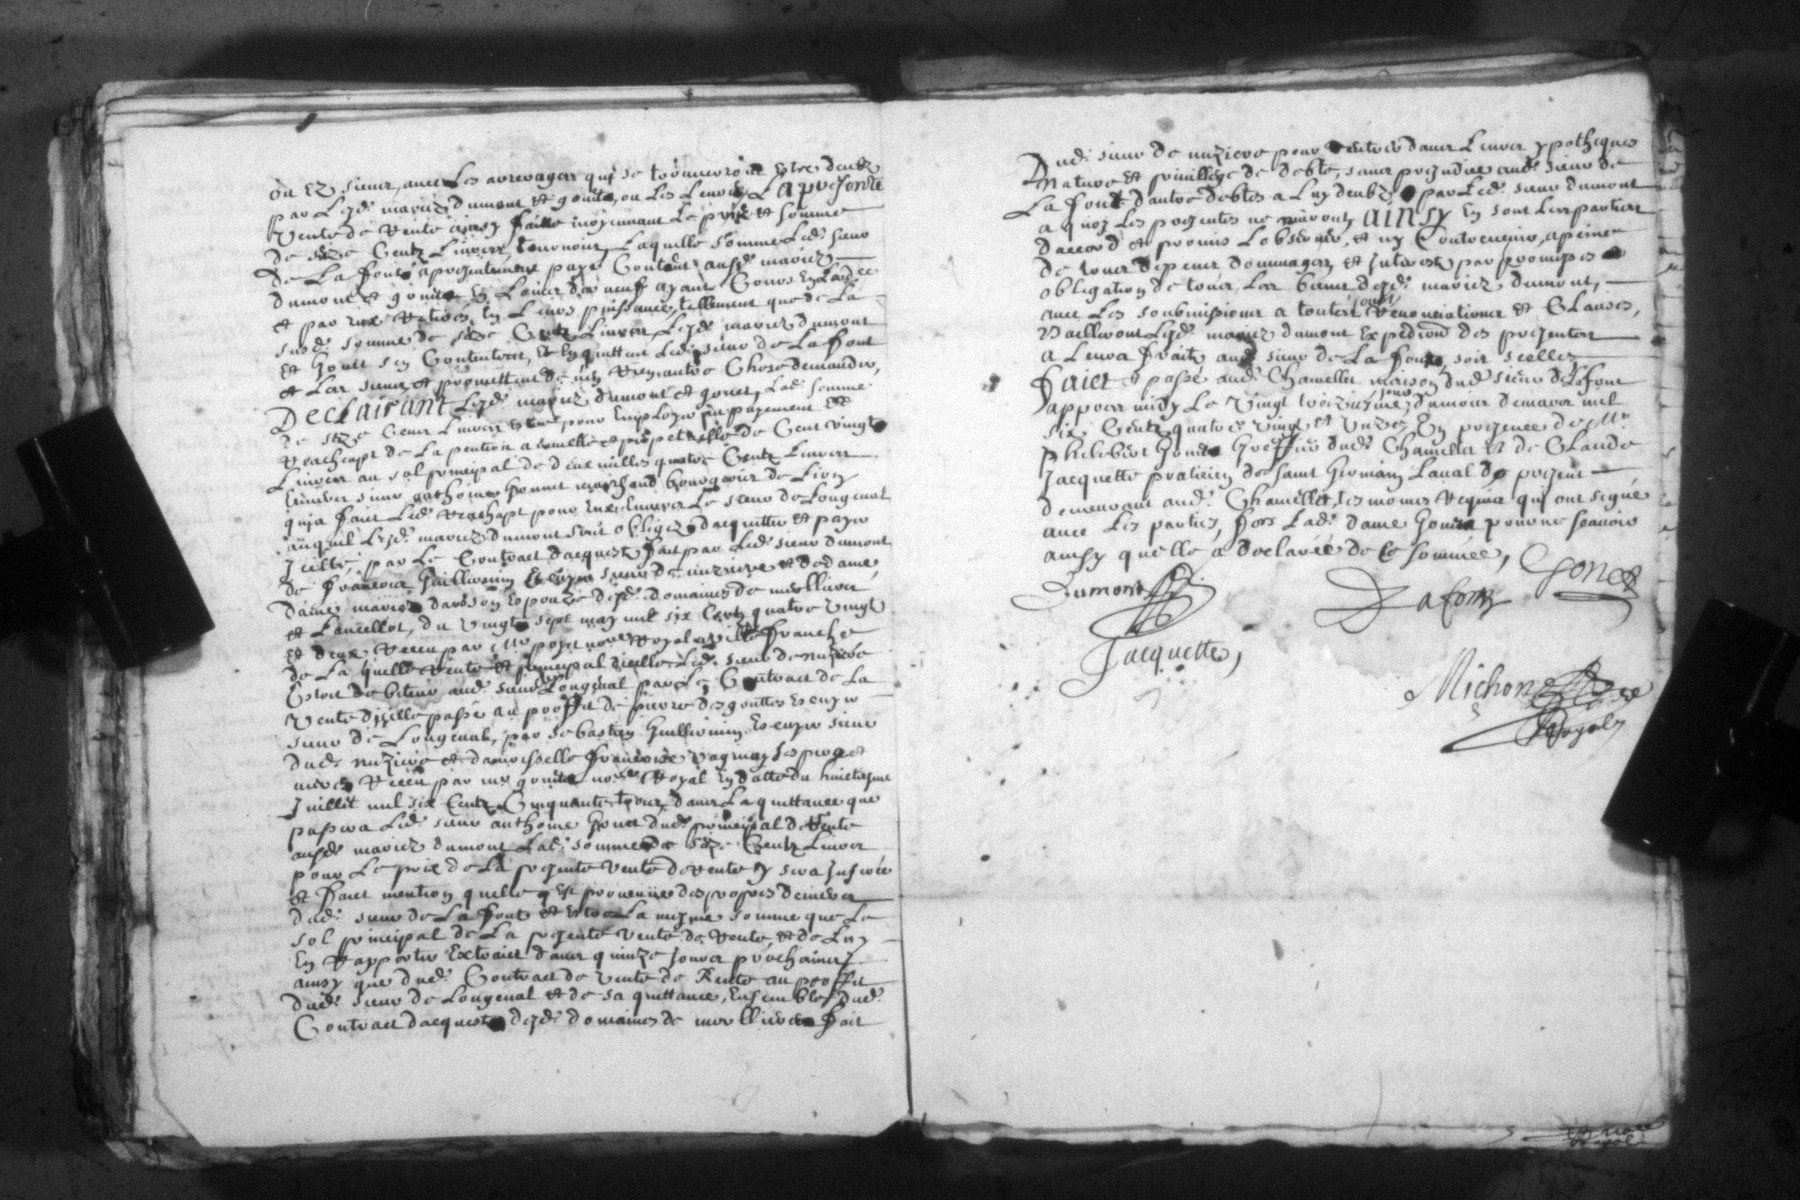 ou ez sieur, avec les arreragers qui se trouveront estre deubz
par lesd. mariez dumont et gonet, ou les leurs, La presente
vente de rente ainsy faitte moyennant le prix et somme
de seze centz livres tournois, laquelle somme led. sieur
de La font a presentement payé contant ausd. mariez
dumont et gonet, en Louis d'or neuf ayant cours
et par eux retirés en leurs puissance, tellement que de la
susd. somme de seze centz livres lesd. mariez dumont
et gonet sen contentent, et en quittent led. sieur de La font
et Les siens et promettent de nen rien autre chose demander,
Declairant lesd. mariez dumont et gonet, lad. somme
de seze cent livres estre pour employer au payement et
reachapt de la pention annuelle et perpetuelle de cent vingt
livres au sol principal de deux milles quatre centz livres
envers sieur anthoine gonnet marchand bourgeois de Lion
qui a fait led. reachapt pour eux envers le sieur de Longeval
auquel lesd. mariez dumont sont obligez dacquitter et payer
icelle, par le contract dacquest fait par led. sieur dumont
de françois Guillermin escuyer sieur de nuziere et de dame
dame marie son espouze desd. domaines de meillier
et Lancellot, du vingt sept may mil six centz quatre vingt
et deux receu par Me nore Royal a villefranche
de la quelle rente et principal dicelle led. sieur de nuzière
estoit debiteur aud. sieur Longeval par le contract de la
vente dicelle passé au proffit de pierre desgouttes escuyer
sieur de Longeval, par sebastien Guillermin escuyer sieur
dud. nuzière et damoiselle françoise ses pere et
mere receu par me gonet nore Royal en datte du huictiesme
Juillet mil six centz cinquante trois, dans la quittance que
passera led. sieur anthoine gonet dud. principal de rente
ausd. mariez dumont lad. somme de seze centz livres
pour le prix de la presente vente de rente y sera inserée
et fait mention quelle est provenue des propres deniers
dud. sieur de La font et estre la mesme somme que le
sol principal de la presente vente de rente, et de luy
en rapporter extraict dans quinze jours prochains,
ainsy que dud. contract de vente de Rente au proffit
dud. sieur de Longeval et de sa quittance, ensemble dud.
Contract dacquest desd. domaines de meillier fait
Dud. sieur de nuziere pour rentrer dans leurs ypotheques
nature et privillege de debte, sans prejudice aud. sieur de
La font dautre debtes a luy deubz par led. sieur dumont
a quoy les presentes ne nuiront, ainsy en sont les parties
daccord et promis lobserver, et ny contrevenir, a peine
de tous depens dommages et interest par promesses et
obligation de tous les biens desd. mariez dumont,
avec les soubmissions a toutes cours renonciations et clauses,
Bailleront lesd. mariez dumont expedition des presentes
a leurs fraits aud. sieur de La font, soit scellez
Faict et passé aud. Chamellet maison dud. sieur de La font
appres midy le vingt troiziesme jour du mois de mars mil
six centz quatre vingt et unze, En presence de Me
philebert Gonet greffier dud. Chamellet et de Claude
Jacquette praticien de saint Germain Laval de present
demeurant aud. Chamellet, tesmoins requis qui ont signé
avec les parties, fors lad. dame gonet pour ne sçavoir
ainsy quelle a declarée de ce sommée,
Gonet
Dumont
Lafont
Jacquette,
Michon nore
Royal